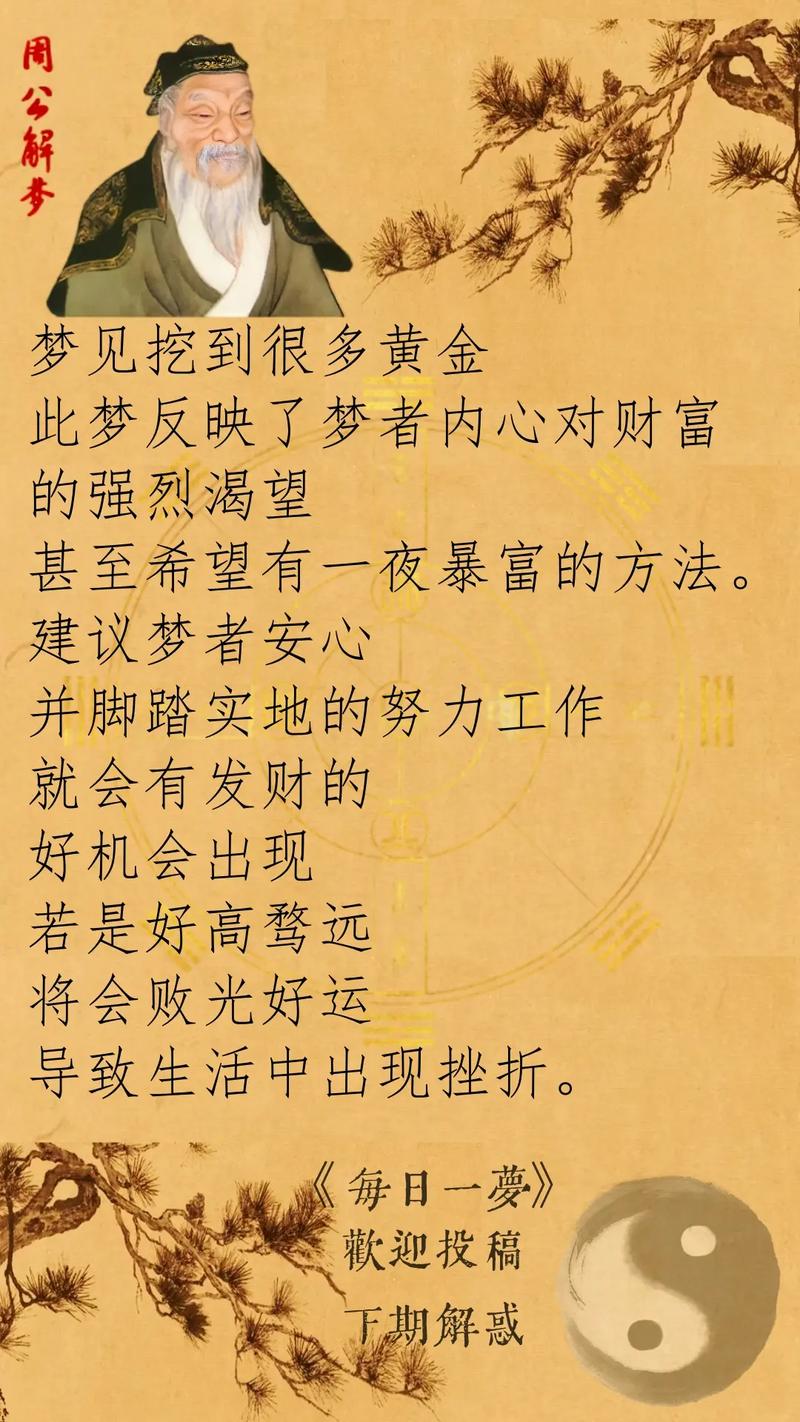 周公解梦
梦见挖到很多黄金
此梦反映了梦者内心对财富
的强烈渴望
甚至希望有一夜暴富的方法。
建议梦者安心
并脚踏实地的努力工作
就会有发财的
好机会出现
若是好高骛远
将会败光好运
导致生活中出现挫折。
《每日一夢》
歡迎投稿
下期解惑